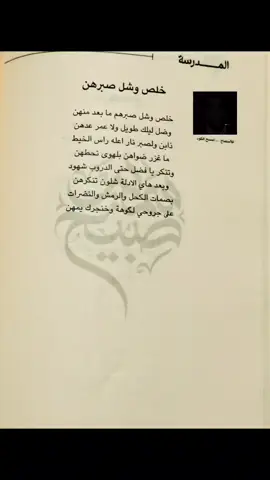 المـــدرسة
خلص وشل صبرهن
خلص وشل صبرهم ما بعد منهن
وضل ليلك طويل ولا عمر عدهن
ذابن ولصبر نار اعله راس الخيط
ما غزر ضواهن بلهوى تحطهن
وتنكر يا فضل حتى الدروب شهود
وبعد هاي الادلة شلون تنكرهن
بصمات الكحل والرمش والنضرات
على جروحي لكوهة وخنجرك يمهن